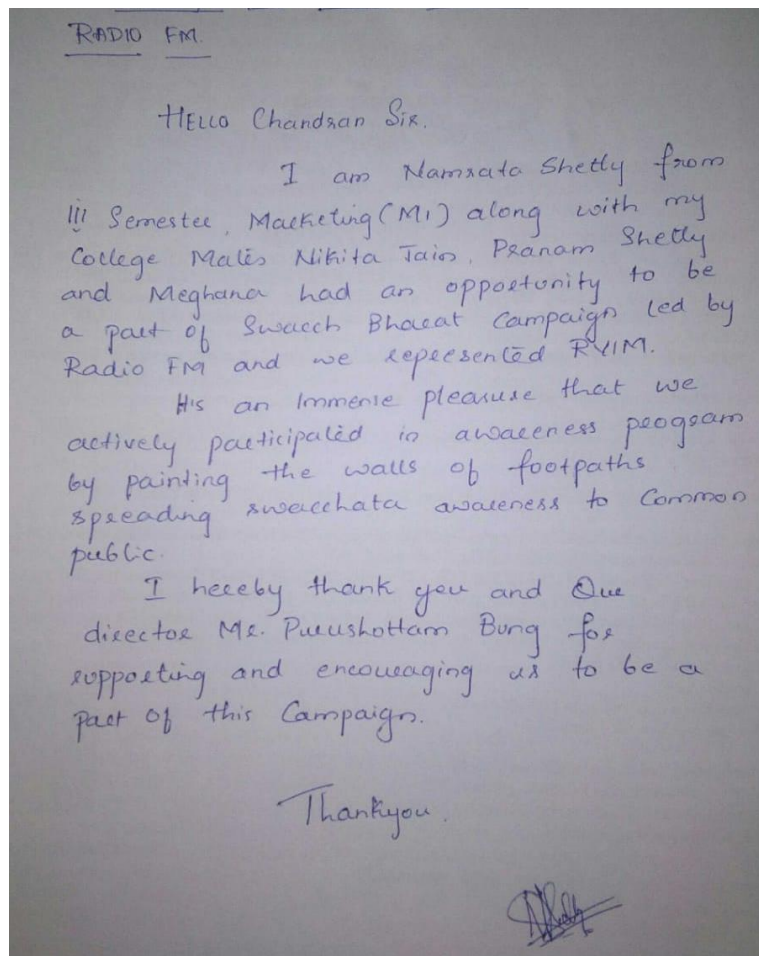 RADIO FM.
HELLO Chandran Sir.
I am Namrata Shetty from
III Semester, Marketing (M1) along with my
College Mates Nikita Jain, Pranam Shetty
and Meghana had an opportunity to be
a part of Swacch Bharat Campaign led by
Radio FM and we represented RVIM.
It's an Immense pleasure that we
actively participated in awareness program
by painting the walls of footpaths
spreading swacchata awareness to Common
public.
I hereby thank you and Our
director Mr. Purushottam Bung for
supporting and encouraging us to be a
part of this Campaign.
Thankyou.